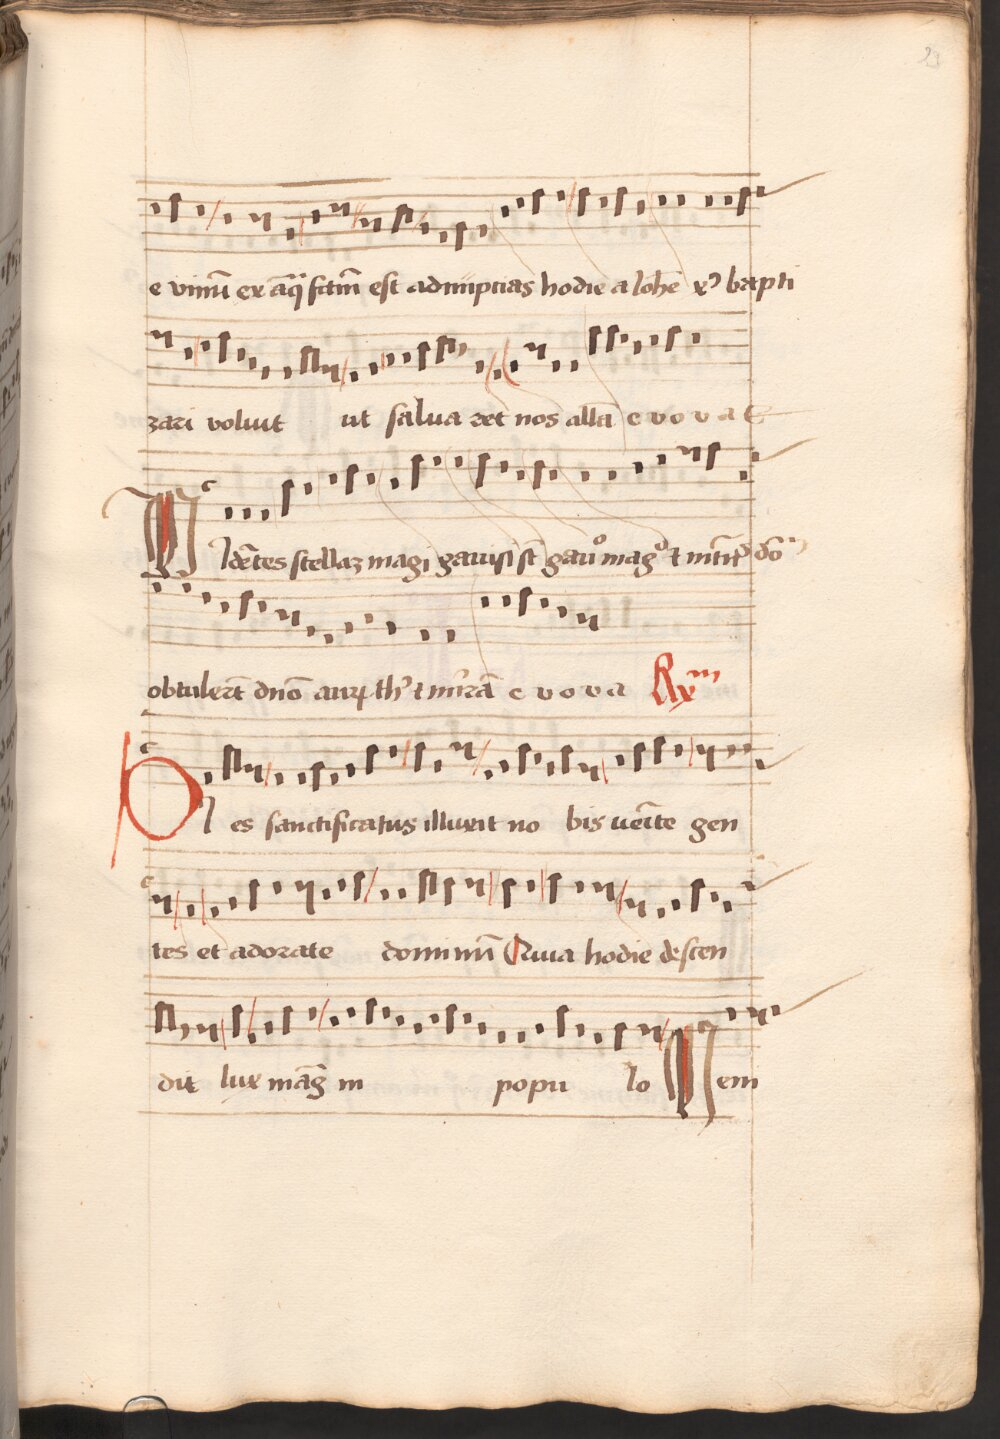 23
e vinū ex aq̄ fctm̄ est ad nupcias hodie a Iohē xp̄ bapti
zari voluit ut salua ret nos allā e v o v a e
Vidētes stellaʒ magi gauisi sт̄ gau° mag° et int̄
obtulerт̄ dn̄o aurꝫ th² et mirrā e v o v a Rm
Dies sanctificatus illuxit no bis ueīte gen
tes et adorate dominū Quia hodie descen
dit lux maḡ in popu lo Veni